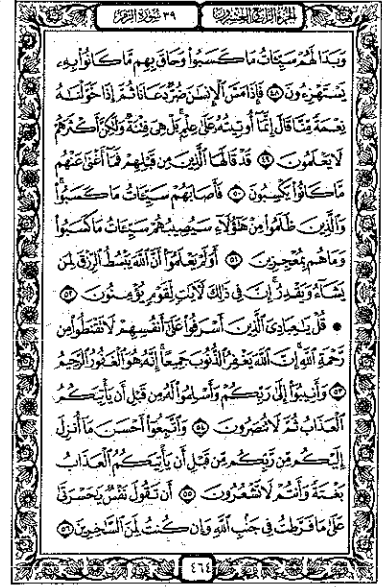 الجزء الرابع والعشرون ٣٩ سورة الزمر
وَبَدَا لَهُمْ سَيِّئَاتُ مَا كَسَبُوا وَحَاقَ بِهِم مَّا كَانُوا بِهِۦ
يَسْتَهْزِءُونَ ٤٨ فَإِذَا مَسَّ الْإِنسَٰنَ ضُرٌّ دَعَانَا ثُمَّ إِذَا خَوَّلْنَٰهُ
نِعْمَةً مِّنَّا قَالَ إِنَّمَا أُوتِيتُهُۥ عَلَىٰ عِلْمٍ بَلْ هِىَ فِتْنَةٌ وَلَٰكِنَّ أَكْثَرَهُمْ
لَا يَعْلَمُونَ ٤٩ قَدْ قَالَهَا الَّذِينَ مِن قَبْلِهِمْ فَمَا أَغْنَىٰ عَنْهُم
مَّا كَانُوا يَكْسِبُونَ ٥٠ فَأَصَابَهُمْ سَيِّئَاتُ مَا كَسَبُوا
وَالَّذِينَ ظَلَمُوا مِنْ هَٰؤُلَاءِ سَيُصِيبُهُمْ سَيِّئَاتُ مَا كَسَبُوا
وَمَا هُم بِمُعْجِزِينَ ٥١ أَوَلَمْ يَعْلَمُوا أَنَّ اللَّهَ يَبْسُطُ الرِّزْقَ لِمَن
يَشَاءُ وَيَقْدِرُ إِنَّ فِى ذَٰلِكَ لَآيَاتٍ لِّقَوْمٍ يُؤْمِنُونَ ٥٢
• قُلْ يَٰعِبَادِىَ الَّذِينَ أَسْرَفُوا عَلَىٰ أَنفُسِهِمْ لَا تَقْنَطُوا مِن
رَّحْمَةِ اللَّهِ إِنَّ اللَّهَ يَغْفِرُ الذُّنُوبَ جَمِيعًا إِنَّهُۥ هُوَ الْغَفُورُ الرَّحِيمُ
٥٣ وَأَنِيبُوا إِلَىٰ رَبِّكُمْ وَأَسْلِمُوا لَهُۥ مِن قَبْلِ أَن يَأْتِيَكُمُ
الْعَذَابُ ثُمَّ لَا تُنصَرُونَ ٥٤ وَاتَّبِعُوا أَحْسَنَ مَا أُنزِلَ
إِلَيْكُم مِّن رَّبِّكُم مِّن قَبْلِ أَن يَأْتِيَكُمُ الْعَذَابُ
بَغْتَةً وَأَنتُمْ لَا تَشْعُرُونَ ٥٥ أَن تَقُولَ نَفْسٌ يَٰحَسْرَتَىٰ
عَلَىٰ مَا فَرَّطتُ فِى جَنۢبِ اللَّهِ وَإِن كُنتُ لَمِنَ السَّٰخِرِينَ ٥٦
٤٦٤